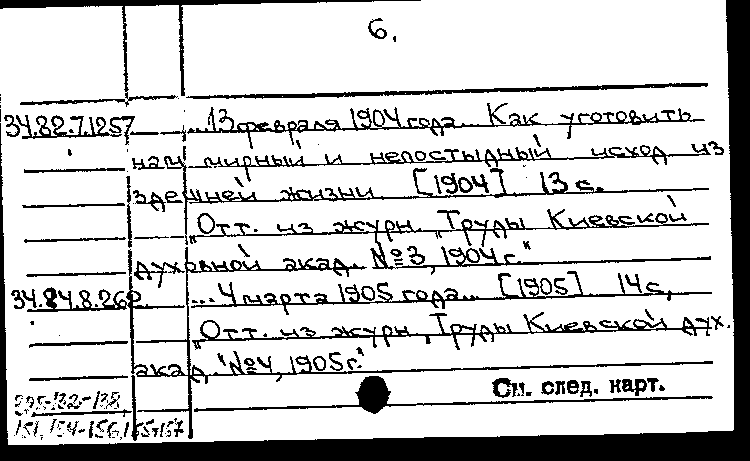 6.
34.82.7.1257 ...13 февраля 1904 года... Как уготовить
нам мирный и непостыдный исход из
здешней жизни. [1904] 13 с.
„Отт. из журн. „Труды Киевской
духовной акад. №3, 1904 г."
34.84.8.262 ...4 марта 1905 года... [1905] 14 с,
„Отт. из журн. „Труды Киевской дух.
акад, "№4, 1905г."
См. след. карт.
151, 154-156,